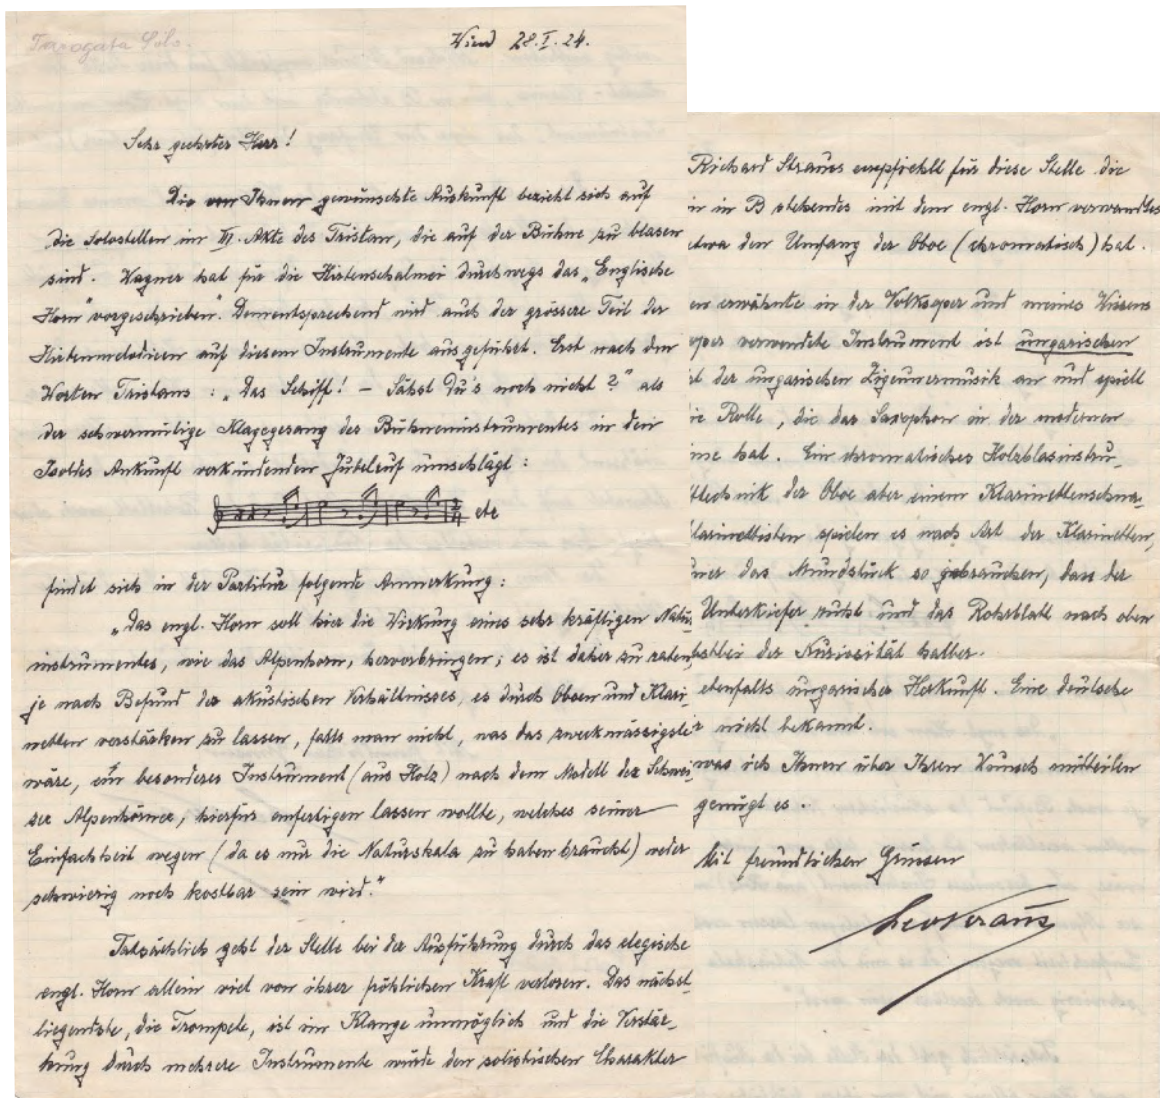 Tárogató Solo.
Wien 28.I.24.
Sehr geehrter Herr!
Die von Ihnen gewünschte Auskunft bezieht sich auf
die Solostellen im III. Akte des Tristan, die auf der Bühne zu blasen
sind. Wagner hat für die Hirtenschalmei durchwegs das „Englische
Horn" vorgeschrieben. Dementsprechend wird auch der grössere Teil der
Hirtenmelodieen auf diesem Instrumente ausgeführt. Erst nach den
Worten Tristans : „Das Schiff! – Sähst Du's noch nicht?" als
der schwermütige Klagegesang des Bühneninstrumentes in den
Isoldes Ankunft verkündenden Jubelruf umschlägt :
etc
findet sich in der Partitur folgende Anmerkung :
„Das engl. Horn soll hier die Wirkung eines sehr kräftigen Natur-
instrumentes, wie das Alpenhorn, hervorbringen; es ist daher zu raten,
je nach Befund des akustischen Verhältnisses, es durch Oboen und Klari-
netten verstärken zu lassen, falls man nicht, was das zweckmässigste
wäre, ein besonderes Instrument (aus Holz) nach dem Modell der Schwei-
zer Alpenhörner, hierfür anfertigen lassen wollte, welches seiner
Einfachheit wegen (da es nur die Naturskala zu haben braucht) weder
schwierig noch kostbar sein wird."
Tatsächlich geht der Stelle bei der Ausführung durch das elegische
engl. Horn allein viel von ihrer fröhlichen Kraft verloren. Das nächst-
liegendste, die Trompete, ist im Klange unmöglich und die Verstär-
kung durch mehrere Instrumente würde den solistischen Charakter
Richard Strauss empfiehlt für diese Stelle die
in B stehendes mit dem engl. Horn verwandtes
etwa den Umfang der Oboe (chromatisch) hat.
erwähnte in der Volksoper und meines Wissens
verwendete Instrument ist ungarischen
der ungarischen Zigeunermusik an und spielt
die Rolle, die das Saxophon in der modernen
hat. Ein chromatisches Holzblasinstru-
der Oboe aber einem Klarinettenschna-
spielen es nach Art der Klarinetten,
das Mundstück so gebrauchen, dass der
Unterkiefer ruht und das Rohrblatt nach oben
bei der Kuriosität halber.
ebenfalls ungarischer Herkunft. Eine deutsche
nicht bekannt.
was ich Ihnen über Ihren Wunsch mitteilen
genügt es.
Mit freundlichen Grüssen
Leo Kraus